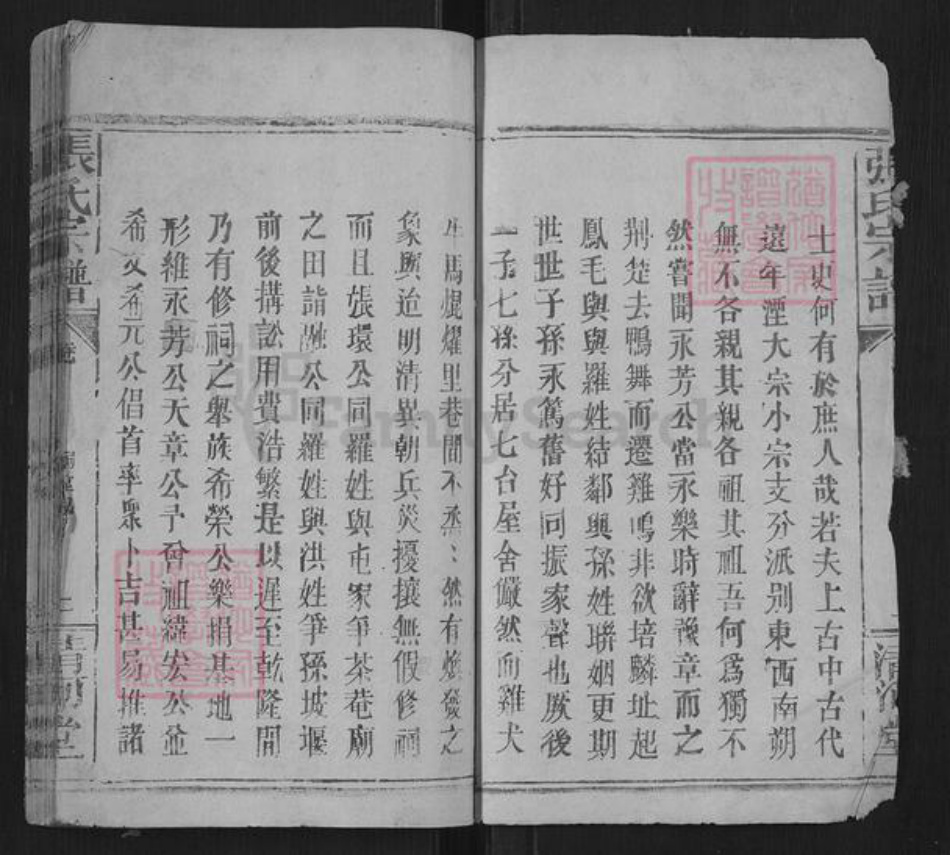 張氏宗譜
士史何有於庶人哉若夫上古中古代
遠年湮大宗小宗支分派别東西南朔
無不各親其親各祖其祖吾何爲獨不
然嘗聞永芳公當永樂時辭豫章而之
荆楚去鴨舞而遷雞鳴非欲培麟址起
鳳毛與與羅姓結鄰與孫姓聯姻更期
世世子孫永篤舊好同振家聲也厥後
一子七孫分居七台屋舍儼然而雞犬
牛馬焜燿里巷間不烝烝然有煥發之
象與迨明清異朝兵災擾攘無假修祠
而且張環公同羅姓與屯家爭茶菴廟
之田詣融公同羅姓與洪姓爭孫坡堰
前後搆訟用費浩繁是以遲至乾隆間
乃有修祠之舉族希榮公樂捐基地一
形維永芳公天章公予曾祖緯宏公並
希文希元公倡首率衆卜吉甚易推諸
張氏宗譜
清河堂
FamilySearch